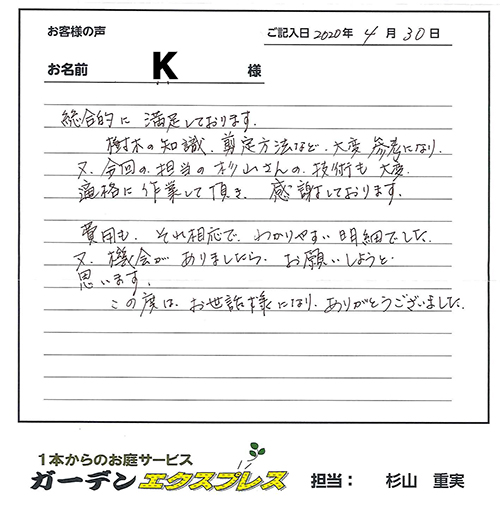 お客様の声
ご記入日 2020年 4月 30日
お名前 K 様
総合的に 満足しております.
樹木の知識. 剪定方法など. 大変 参考になり.
又. 今回の. 担当の 杉山さんの. 技術も 大変.
適格に作業して頂き. 感謝しております.
費用も. それ相応で. わかりやすい 明細でした.
又. 機会が ありましたら. お願いしようと.
思います.
この度は. お世話様になり. ありがとうございました.
1本からのお庭サービス
ガーデンエクスプレス 担当： 杉山 重実